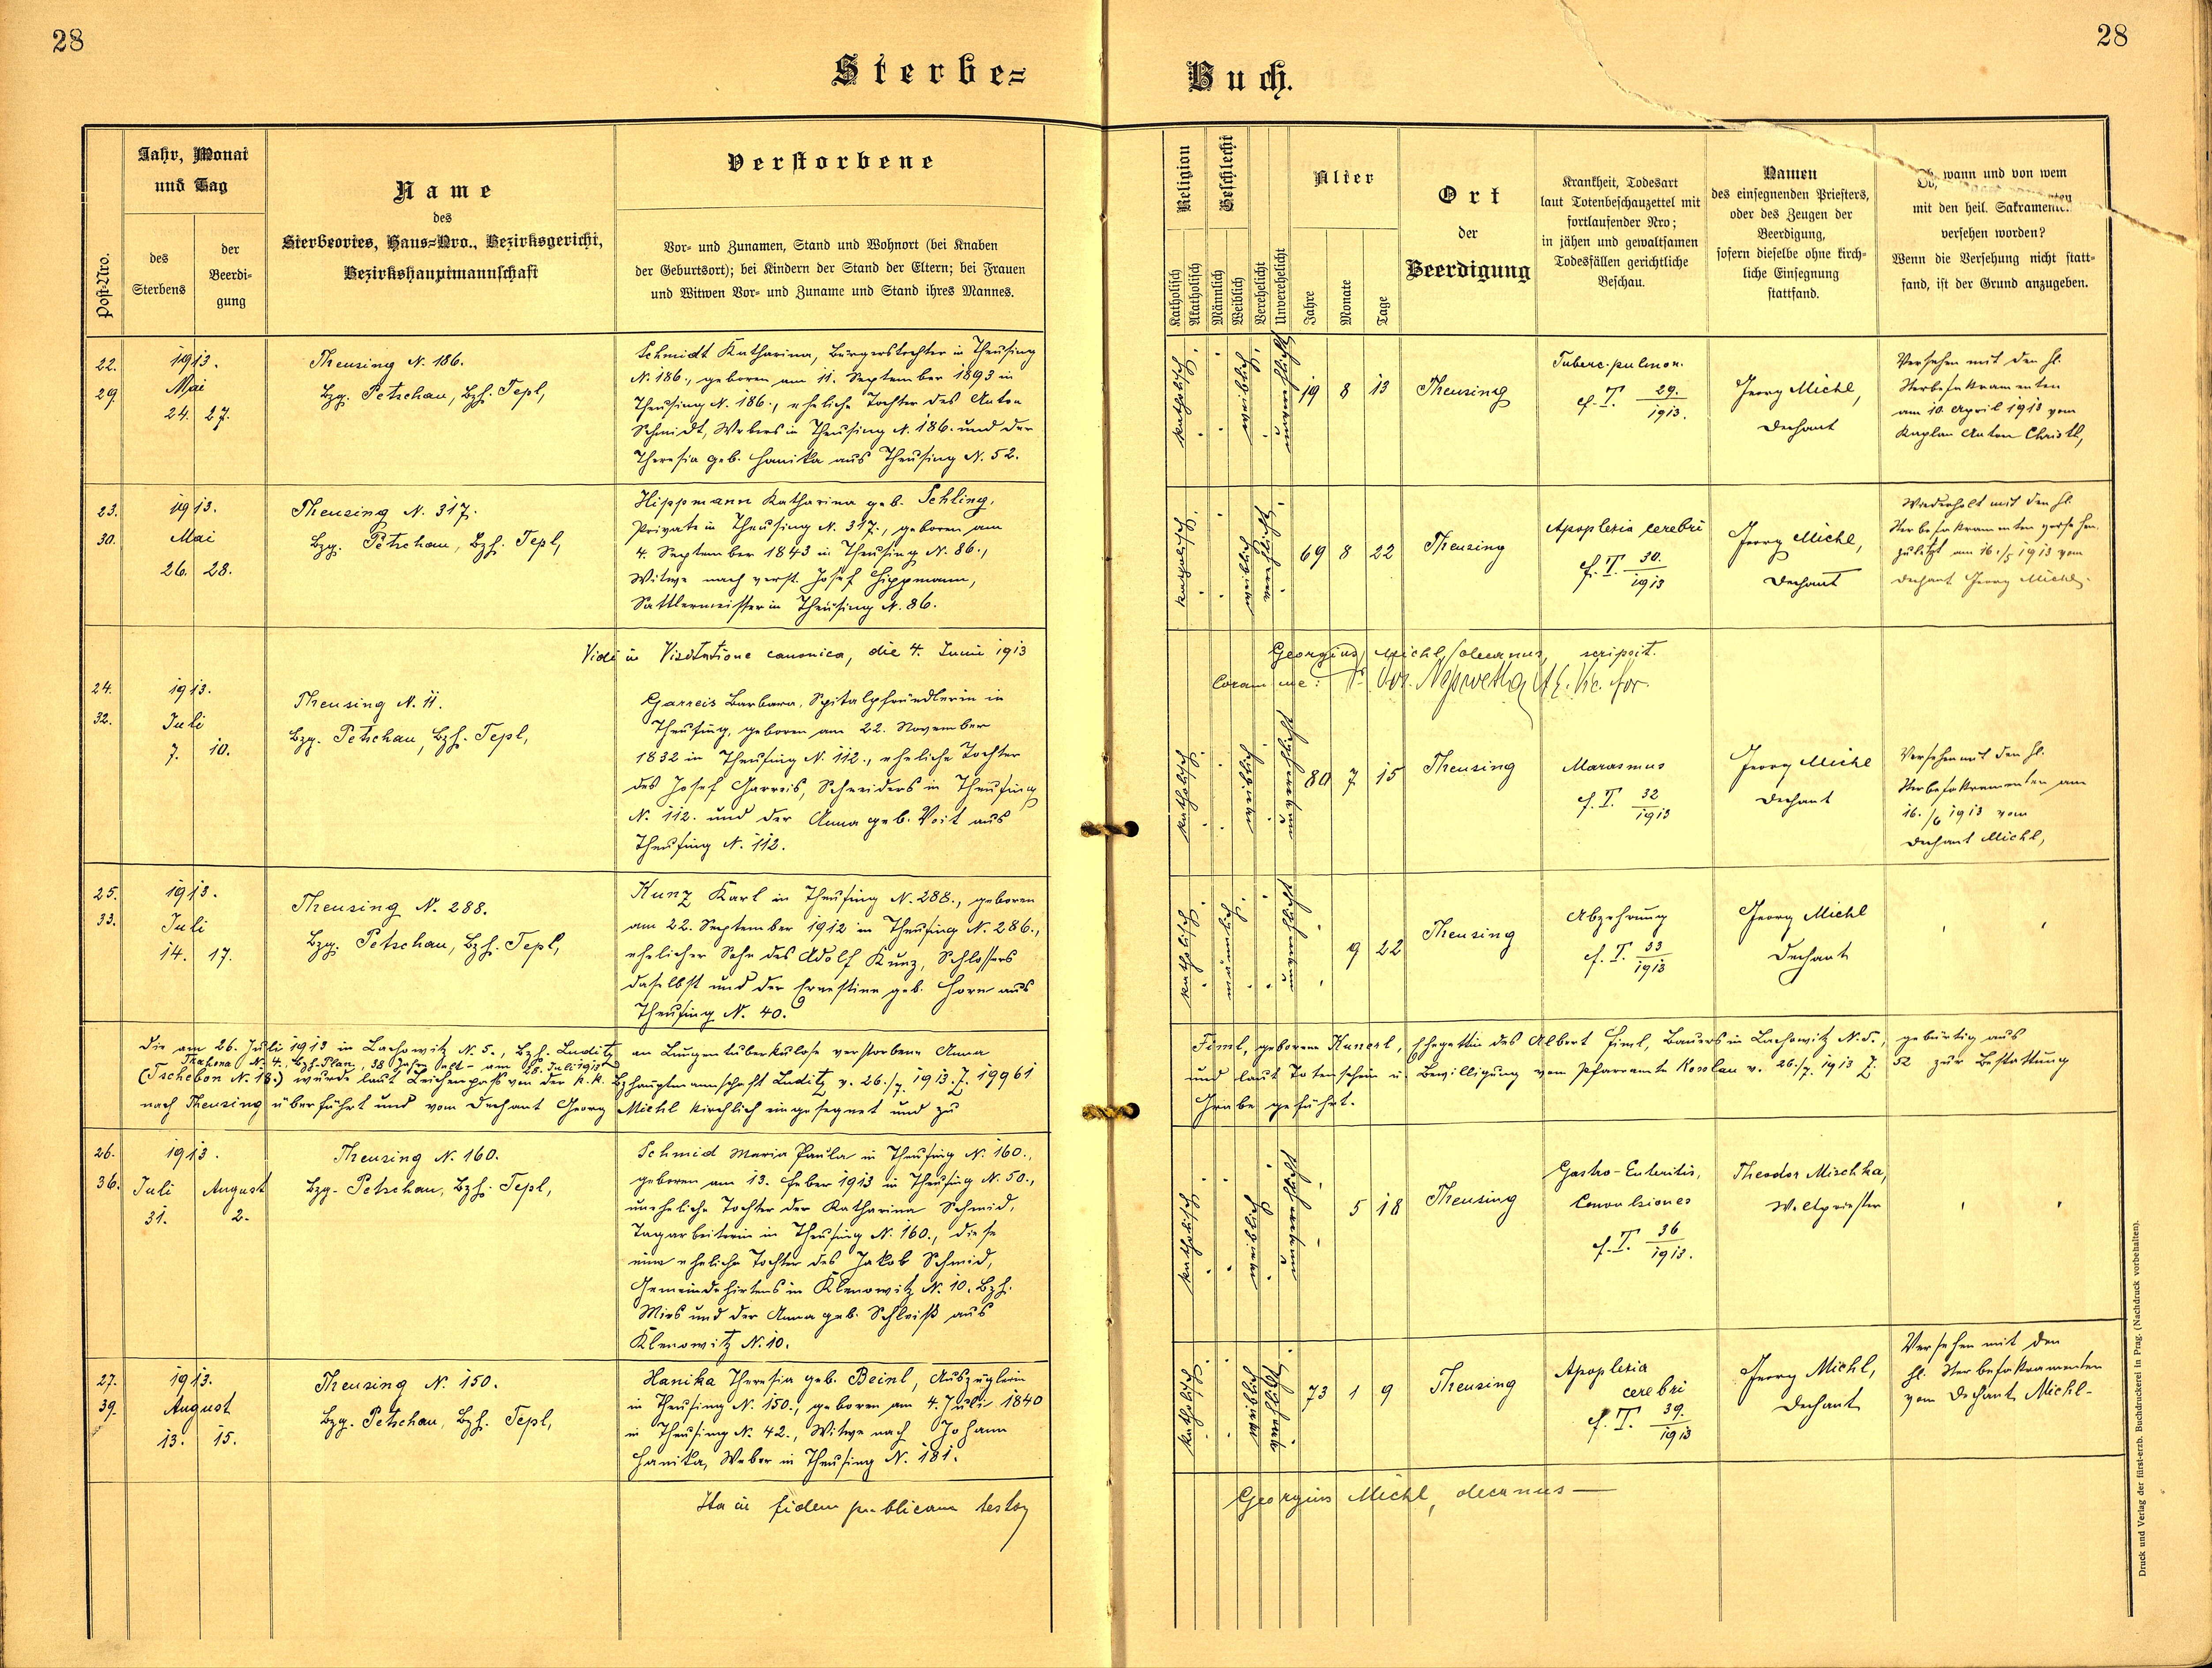 28
28
Sterbe=
Buch.
Jahr, Monat
und Tag
Post-Nro.
des
Sterbens
der
Beerdi-
gung
Name
des
Sterbeortes, Haus=Nro., Bezirksgericht,
Bezirkshauptmannschaft
Verstorbene
Vor- und Zunamen, Stand und Wohnort (bei Knaben
der Geburtsort); bei Kindern der Stand der Eltern; bei Frauen
und Witwen Vor- und Zuname und Stand ihres Mannes.
Religion
Katholisch
Akatholisch
Geschlecht
Männlich
Weiblich
Verehelicht
Unverehelicht
Alter
Jahre
Monate
Tage
Ort
der
Beerdigung
Krankheit, Todesart
laut Totenbeschauzettel mit
fortlaufender Nro;
in jähen und gewaltsamen
Todesfällen gerichtliche
Beschau.
Namen
des einsegnenden Priesters,
oder des Zeugen der
Beerdigung,
sofern dieselbe ohne kirch-
liche Einsegnung
stattfand.
Ob, wann und von wem
mit den heil. Sakramenten
versehen worden?
Wenn die Versehung nicht statt-
fand, ist der Grund anzugeben.
22.
29
1913.
Mai
24. 27.
Theusing N. 186.
Bzg. Petschau, Bzh. Tepl,
Schmidt Katharina, Bürgerstochter in Theusing
N. 186., geboren am 11. September 1893 in
Theusing N. 186., eheliche Tochter des Anton
Schmidt, Webers in Theusing N. 186. und der
Theresia geb. Hanika aus Theusing N. 52.
katholisch
weiblich
unverehelicht
19 8 13
Theusing
Tuberc. pulmon.
cf. T. 29./1913.
Georg Michl,
Dechant
Versehen mit den hl.
Sterbesakramenten
am 10. April 1913 vom
Kaplan Anton Christl,
23.
30.
1913.
Mai
26. 28.
Theusing N. 317.
Bzg. Petschau, Bzh. Tepl,
Hippmann Katharina geb. Schling,
Private in Theusing N. 317., geboren am
4. September 1843 in Theusing N. 86.,
Witwe nach verst. Josef Hippmann,
Sattlermeister in Theusing N. 86.
katholisch
weiblich
verehelicht
69 8 22
Theusing
Apoplexia cerebri
cf. T. 30./1913
Georg Michl,
Dechant
Wiederholt mit den hl.
Sterbesakramenten versehen.
zuletzt am 16./5 1913 vom
Dechant Georg Michl.
Vidi in Visitatione canonica, die 4. Junii 1913
Georgius Michl, decanus, scripsit.
Coram me:
24.
32.
1913.
Juli
7. 10.
Theusing N. 11.
Bzg. Petschau, Bzh. Tepl,
Garreis Barbara, Spitalpfründlerin in
Theusing, geboren am 22. November
1832 in Theusing N. 112., eheliche Tochter
des Josef Garreis, Schneiders in Theusing
N. 112. und der Anna geb. Voit aus
Theusing N. 112.
katholisch
weiblich
unverehelicht
80 7 15
Theusing
Marasmus
cf. T. 32/1913
Georg Michl
Dechant
Versehen mit den hl.
Sterbesakramenten am
16./6 1913 vom
Dechant Michl,
25.
33.
1913.
Juli
14. 17.
Theusing N. 288.
Bzg. Petschau, Bzh. Tepl,
Kunz Karl in Theusing N. 288., geboren
am 22. September 1912 in Theusing N. 286.,
ehelicher Sohn des Adolf Kunz, Schlossers
daselbst und der Ernestine geb. Horn aus
Theusing N. 40.
katholisch
männlich
unverehelicht
9 22
Theusing
Abzehrung
cf. T. 33/1913
Georg Michl
Dechant
Die am 26. Juli 1913 in Lachowitz N. 5., Bzh. Luditz an Lungentuberkulose verstorbene Anna
Fiml, geborene Kunerl, Ehegattin des Albert Fiml, Bauers in Lachowitz N. 5., gebürtig aus
N. 4., Bzh. Plan, 38 Jahre alt - am 28. Juli 1913
(Tschebon N. 18.) wurde laut Leichenpass von der k.k. Bzhauptmannschaft Luditz v. 26./7. 1913. Z. 19961
und laut Totenschein u. Bewilligung vom Pfarramte Kosslau v. 26./7. 1913 Z. 52 zur Bestattung
nach Theusing überführt und vom Dechant Georg Michl kirchlich eingesegnet und zu
Grabe geführt.
26.
36.
1913.
Juli August
31. 2.
Theusing N. 160.
Bzg. Petschau, Bzh. Tepl,
Schmid Maria Paula in Theusing N. 160.,
geboren am 13. Feber 1913 in Theusing N. 50.,
uneheliche Tochter der Katharina Schmid,
Tagarbeiterin in Theusing N. 160., diese
eine eheliche Tochter des Jakob Schmid,
Gemeindehirtens in Klenowitz N. 10. Bzh.
Mies und der Anna geb. Schleiß aus
Klenowitz N. 10.
katholisch
weiblich
unverehelicht
5 18
Theusing
Gastro-Enteritis,
Convulsiones
cf. T. 36/1913.
Theodor Mischka,
Weltpriester
27.
39.
1913.
August
13. 15.
Theusing N. 150.
Bzg. Petschau, Bzh. Tepl,
Hanika Theresia geb. Beinl, Auszüglerin
in Theusing N. 150., geboren am 4. Juli 1840
in Theusing N. 42., Witwe nach Johann
Hanika, Weber in Theusing N. 181.
katholisch
weiblich
verehelicht
73 1 9
Theusing
Apoplexia
cerebri
cf. T. 39./1913
Georg Michl,
Dechant
Versehen mit den
hl. Sterbesakramenten
vom Dechant Michl-
Ita in fidem publicam testor
Georgius Michl, decanus
Druck und Verlag der fürst-erzb. Buchdruckerei in Prag. (Nachdruck vorbehalten).